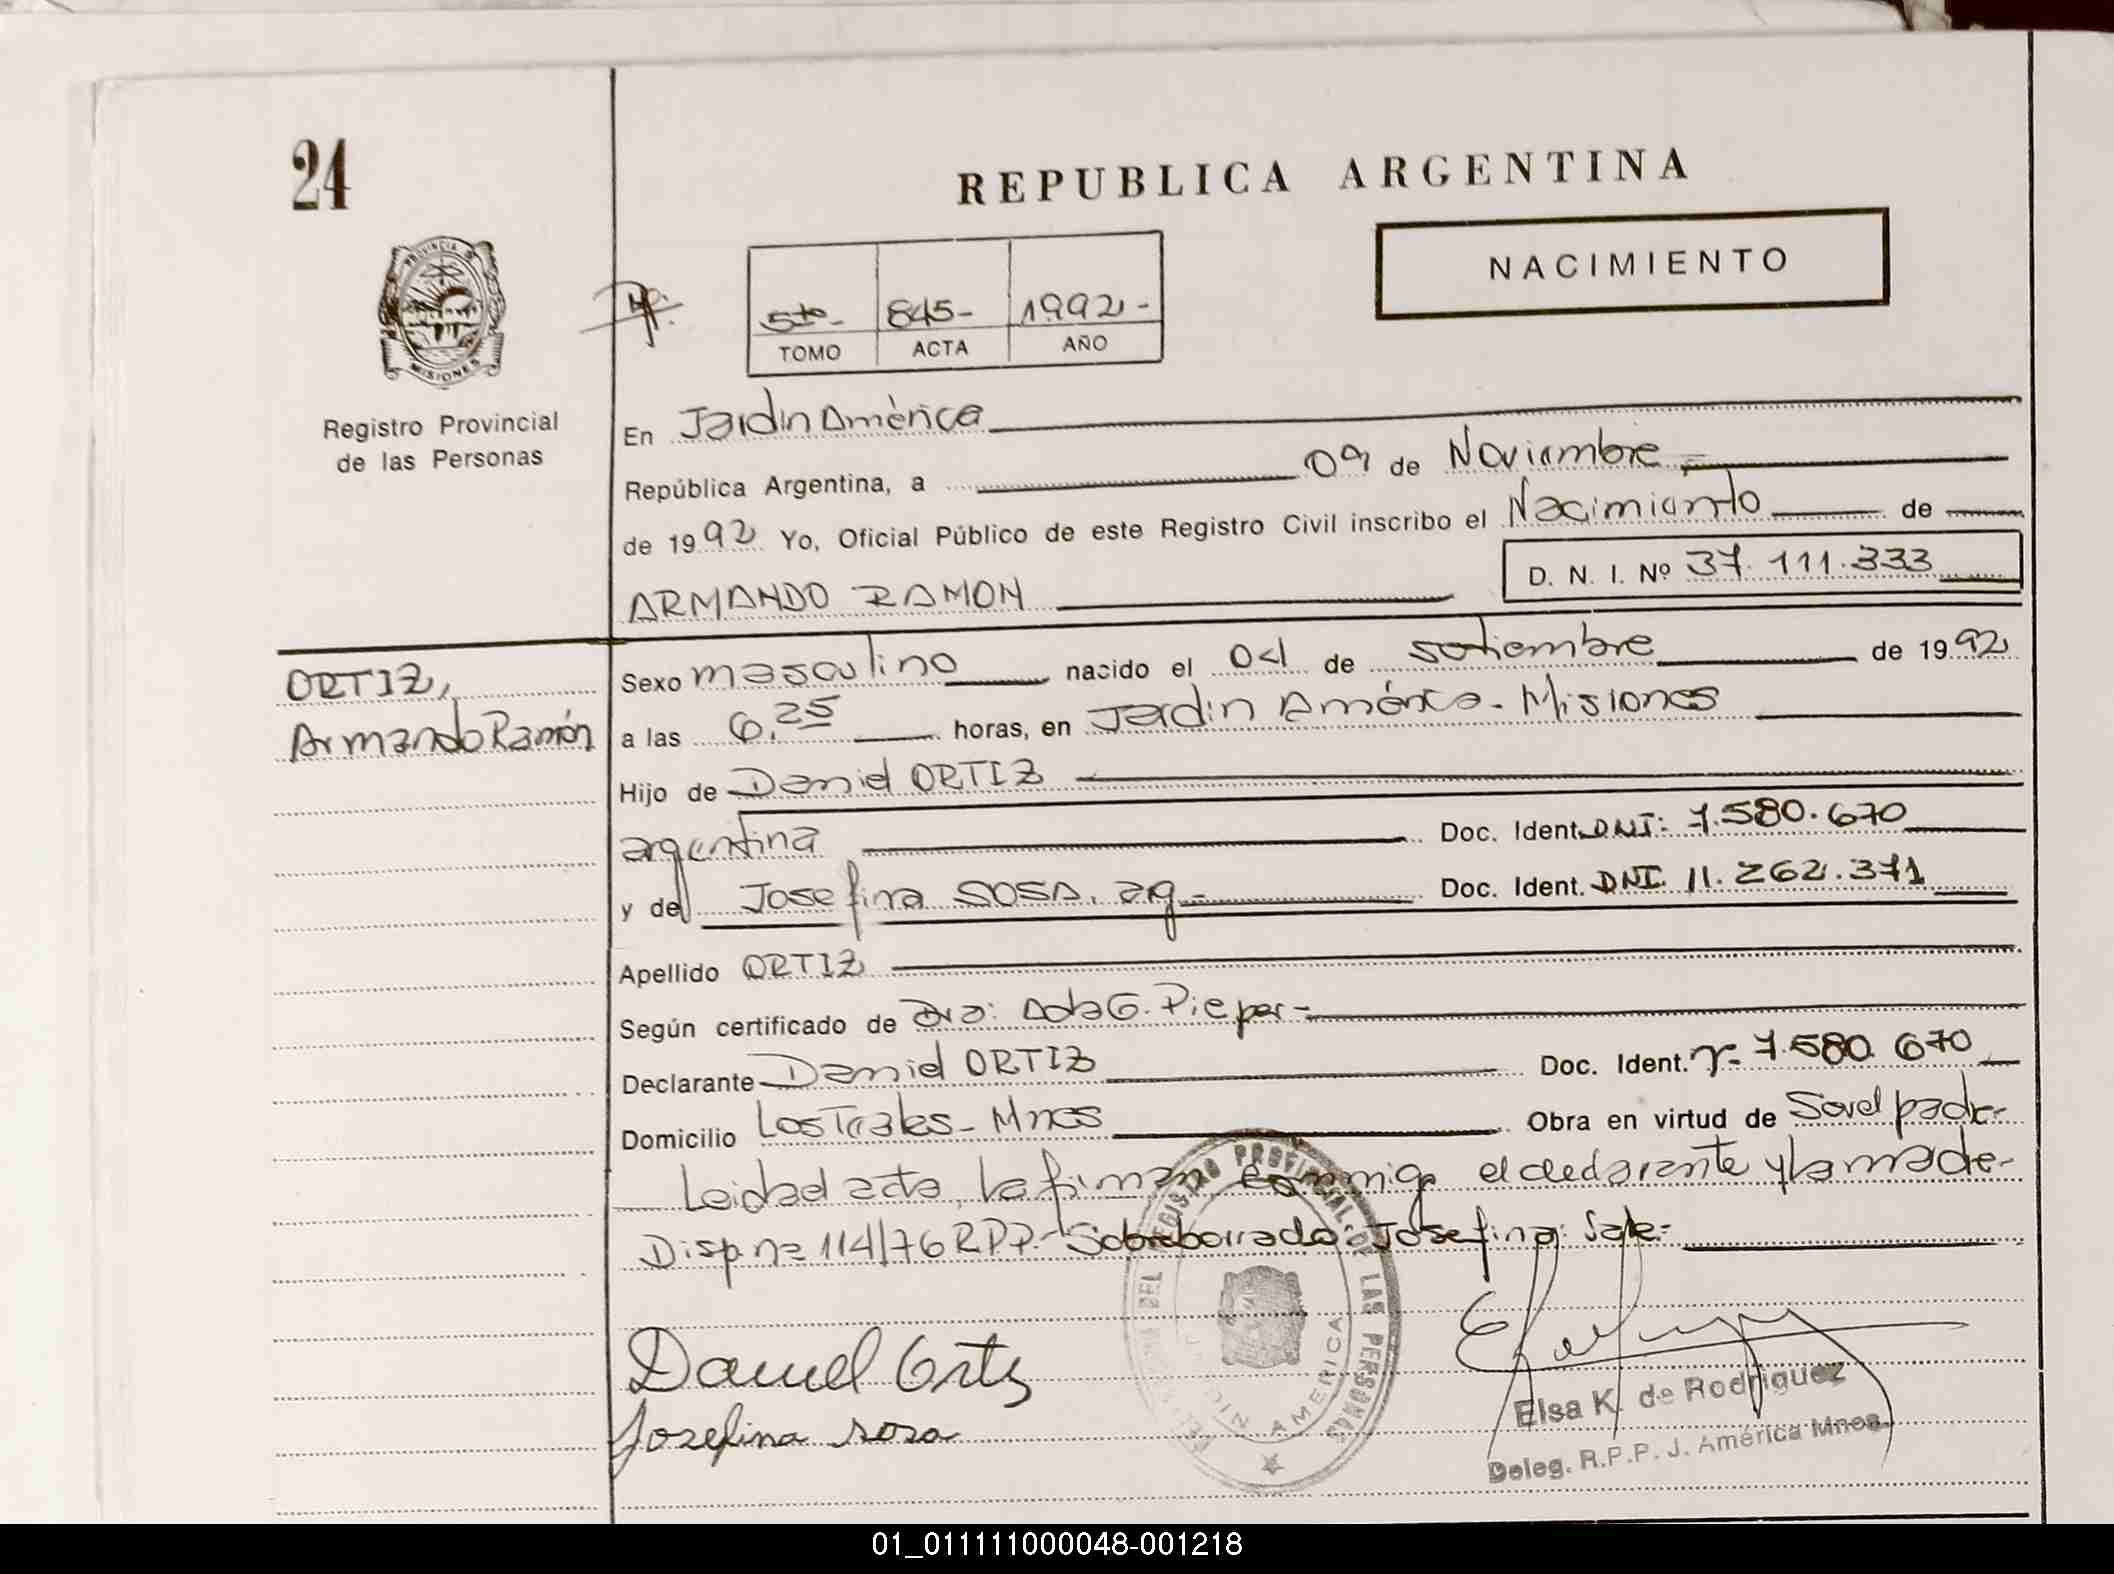 24
REPUBLICA ARGENTINA
NACIMIENTO
PROVINCIA DE
MISIONES
5to- 845- 1992-
TOMO ACTA AÑO
Registro Provincial
de las Personas
En Jardin América
República Argentina, a 09 de Noviembre
de 1992 Yo, Oficial Público de este Registro Civil inscribo el Nacimiento de
ARMANDO RAMON
D. N. I. Nº 37.111.333
ORTIZ,
Armando Ramón
Sexo masculino nacido el 04 de setiembre de 1992
a las 6,25 horas, en Jardin América - Misiones
Hijo de Daniel ORTIZ
argentina Doc. Ident. DNI: 7.580.670
y de Josefina SOSA, arg- Doc. Ident. DNI. 11.262.371
Apellido ORTIZ
Según certificado de Dra: Ada G. Pieper-
Declarante Daniel ORTIZ Doc. Ident. 7.580.670
Domicilio Los Teales - Mnes Obra en virtud de Ser el padre-
Leida el acta, la firman conmigo el declarante y la madre-
Disp nº 114/76 RPP.- Sobreborrado: Josefina: Vale-
Daniel Ortiz
Josefina sosa
DEL REGISTRO PROVINCIAL DE LAS PERSONAS
JARDIN AMERICA
Elsa K. de Rodriguez
Deleg. R.P.P. J. América Mnes.
01_011111000048-001218